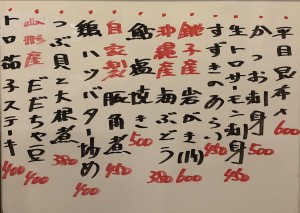 平目昆布〆 600
かつお刺身 500
生トロサーモン刺身 450
すずきのあらい 450
銚子産 岩がき(小) 600
沖縄産 海ぶどう 380
鮎塩焼き 500
自家製 豚角煮 450
鶏ハツバター炒め 400
つぶ貝と大根煮 380
山形産 だだちゃ豆 400
トロ茄子ステーキ 400